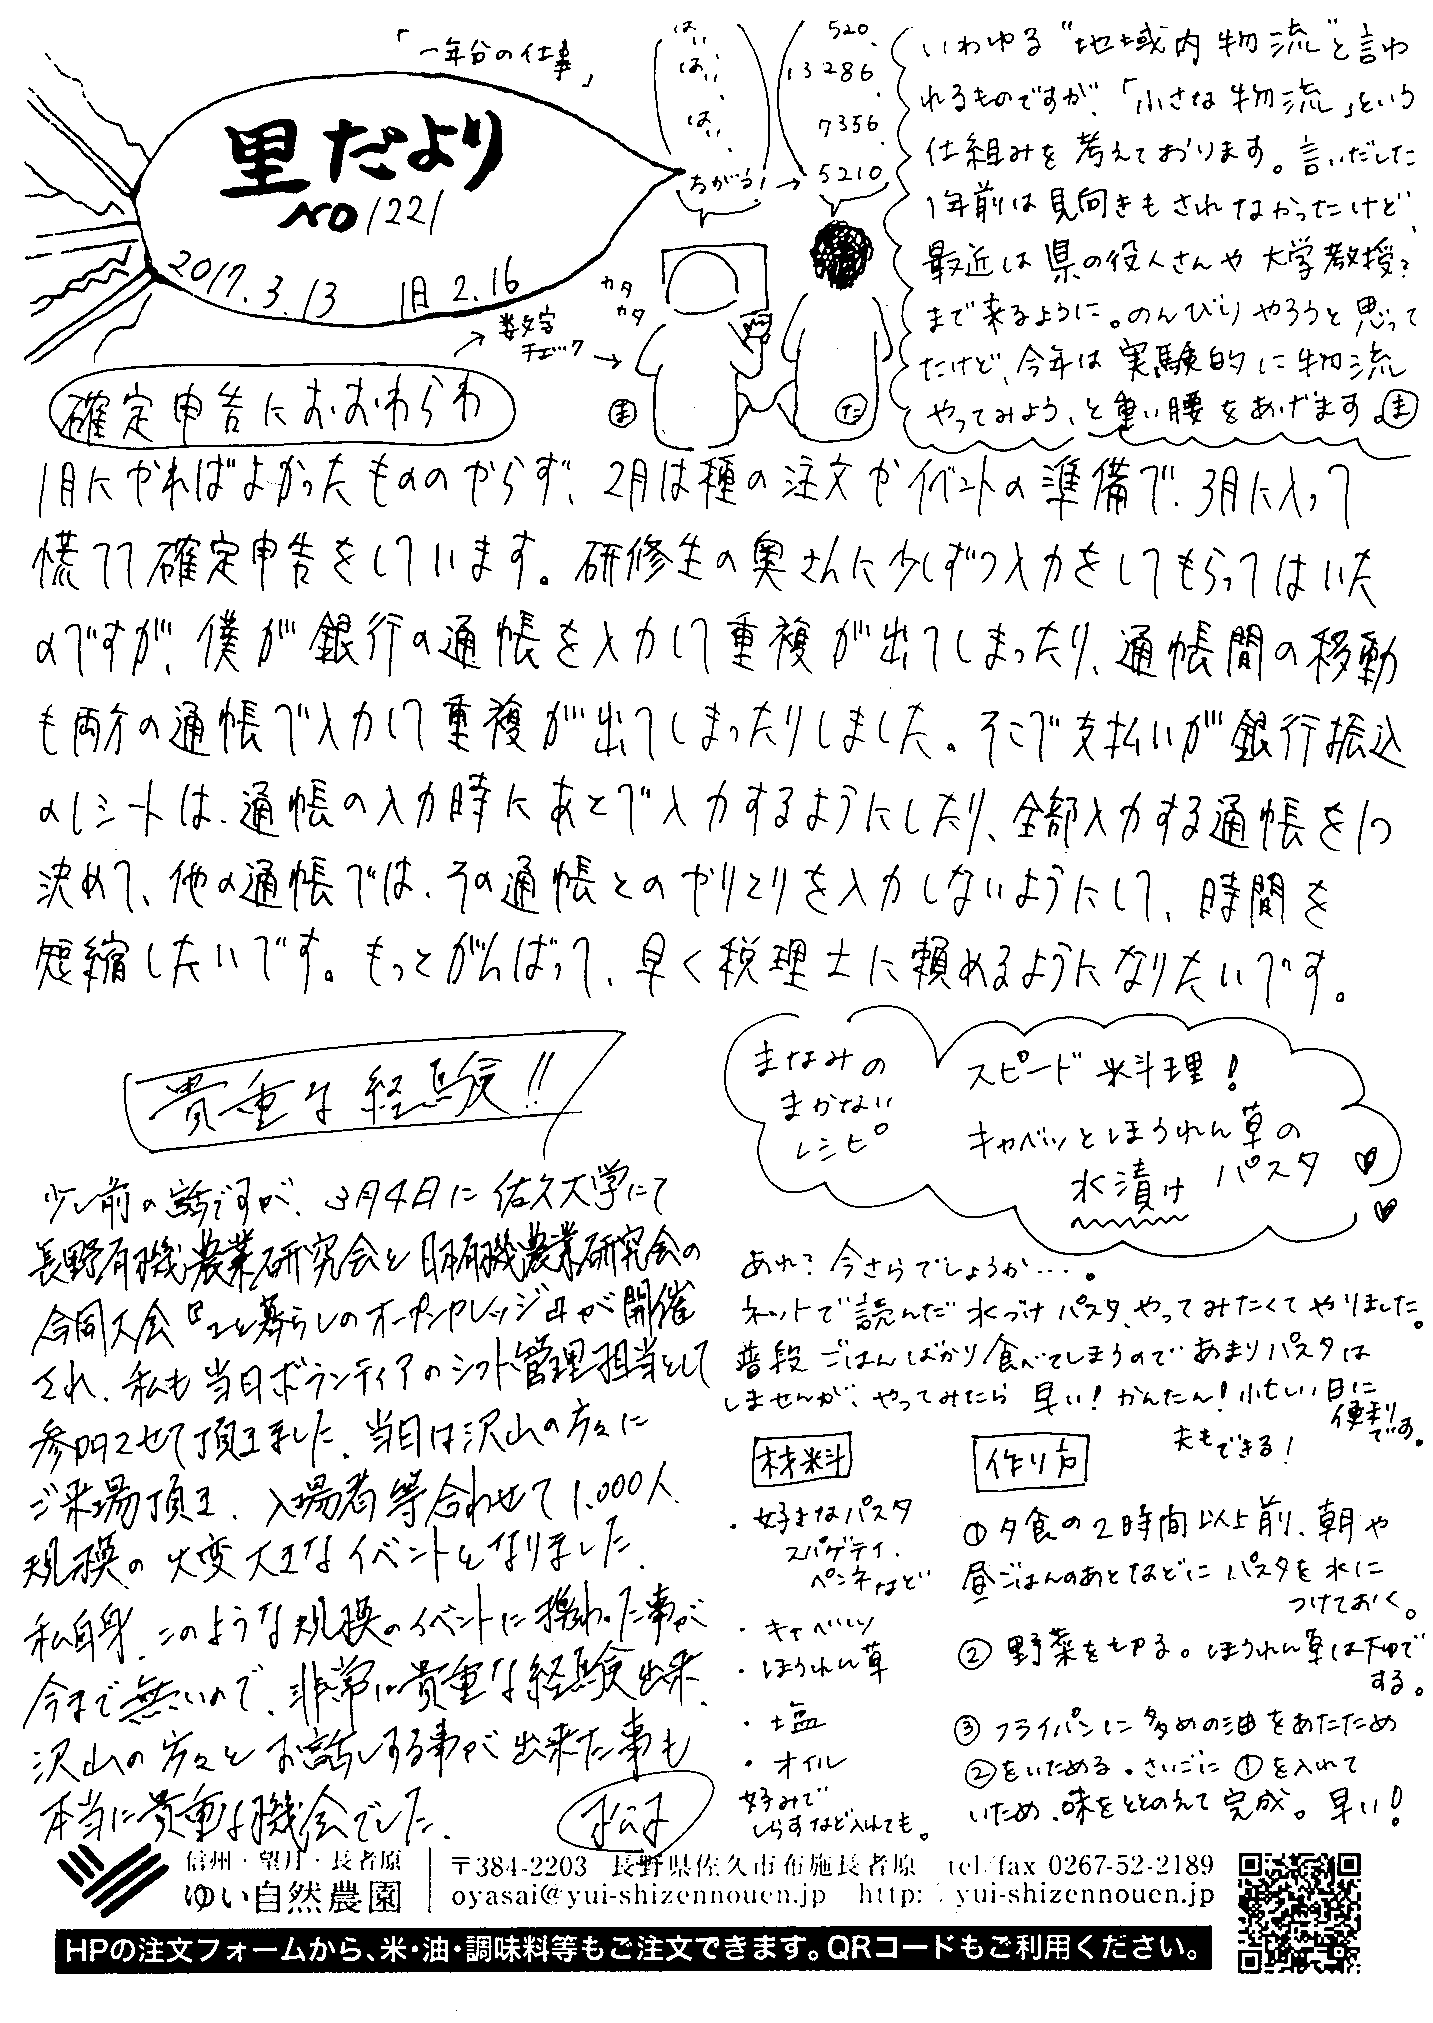 「一年分の仕事」
里だより
NO 1221
2017. 3. 13 旧 2.16
はい、
はい、
はい、
ちがう!→
520、
13286、
7356、
5210
カタ
カタ
数字
チェック
ま
た
いわゆる“地域内物流”と言わ
れるものですが、「小さな物流」という
仕組みを考えております。言いだした
1年前は見向きもされなかったけど、
最近は県の役人さんや大学教授?
まで来るように。のんびりやろうと思って
たけど、今年は実験的に物流
やってみよう、と重い腰をあげます。ま
確定申告におおわらわ
1月にやればよかったもののやらず、2月は種の注文やイベントの準備で、3月に入って
慌てて確定申告をしています。研修生の奥さんに少しずつ入力をしてもらってはいた
のですが、僕が銀行の通帳を入力して重複が出てしまったり、通帳間の移動
も両方の通帳で入力して重複が出てしまったりしました。そこで支払いが銀行振込
のレシートは、通帳の入力時にあとで入力するようにしたり、全部入力する通帳を1つ
決めて、他の通帳では、その通帳とのやりとりを入力しないようにして、時間を
短縮したいです。もっとがんばって、早く税理士に頼めるようになりたいです。
貴重な経験!!
少し前の話ですが、3月4日に佐久大学にて
長野有機農業研究会と日本有機農業研究会の
合同大会『土と暮らしのオープンカレッジ』が開催
され、私も当日ボランティアのシフト管理担当として
参加させて頂きました。当日は沢山の方々に
ご来場頂き、入場者等合わせて1,000人
規模の大変大きなイベントとなりました。
私自身、このような規模のイベントに携わった事が
今まで無いので、非常に貴重な経験出来、
沢山の方々とお話しする事が出来た事も
本当に貴重な機会でした。
まなみの
まかない
レシピ
スピード料理!
キャベツとほうれん草の
水漬けパスタ
あれ?今さらでしょうか…。
ネットで読んだ水づけパスタ、やってみたくてやりました。
普段ごはんばかり食べてしまうのであまりパスタは
しませんが、やってみたら早い!かんたん!忙しい日に
便利です。
夫もできる!
材料
・好きなパスタ
スパゲティ、
ペンネなど
・キャベツ
・ほうれん草
・塩
・オイル
好みで
しらすなど入れても。
作り方
①夕食の2時間以上前、朝や
昼ごはんのあとなどにパスタを水に
つけておく。
②野菜を切る。ほうれん草は下ゆで
する。
③フライパンに多めの油をあたため
②をいためる。さいごに①を入れて
いため、味をととのえて完成。早い!
信州・望月・長者原
ゆい自然農園
〒384-2203 長野県佐久市布施長者原 tel/fax 0267-52-2189
oyasai@yui-shizennouen.jp http: yui-shizennouen.jp
HPの注文フォームから、米・油・調味料等もご注文できます。QRコードもご利用ください。